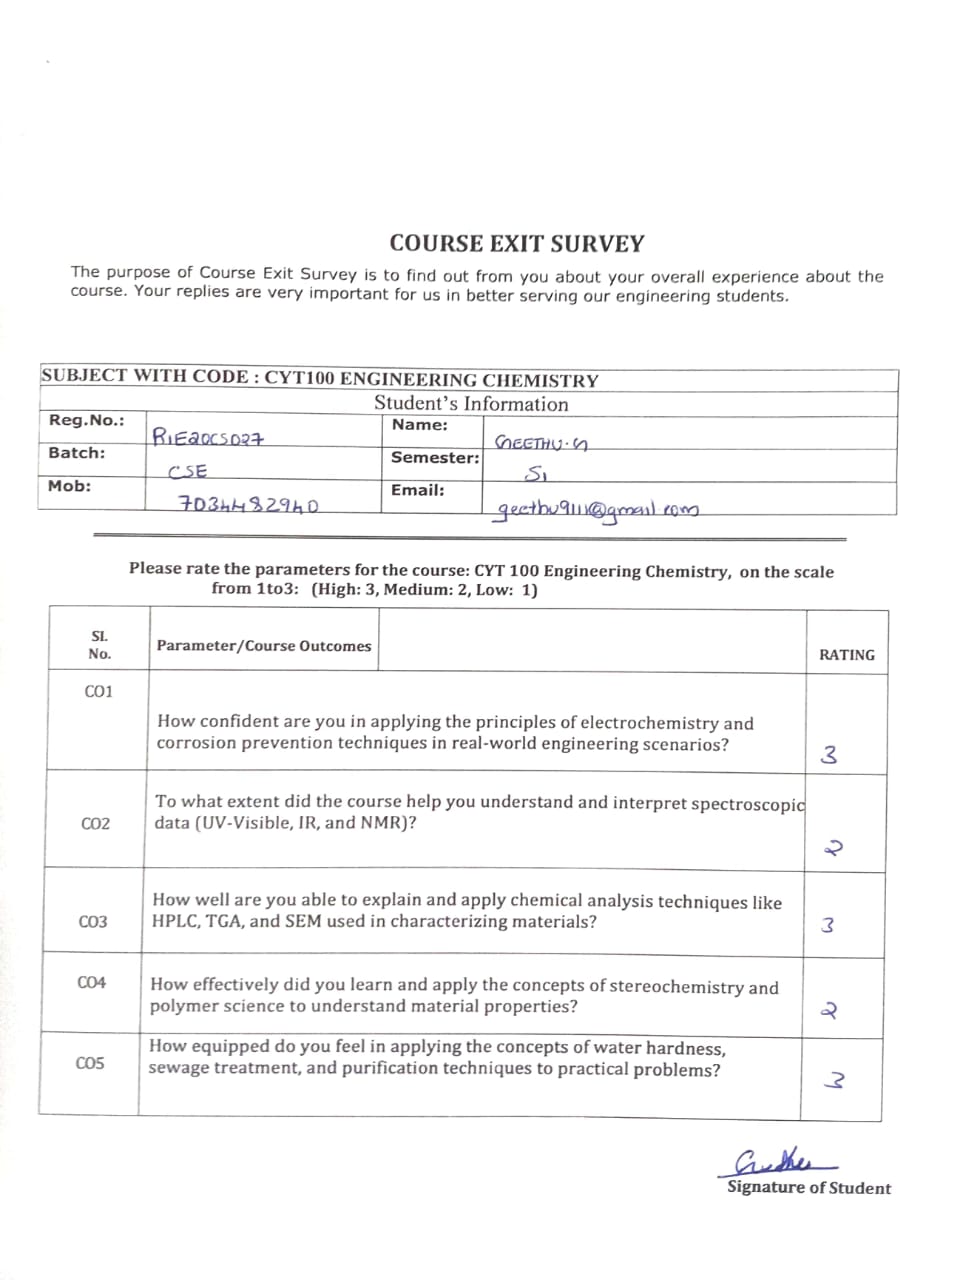 COURSE EXIT SURVEY
The purpose of Course Exit Survey is to find out from you about your overall experience about the
course. Your replies are very important for us in better serving our engineering students.
SUBJECT WITH CODE : CYT100 ENGINEERING CHEMISTRY
Student's Information
Reg.No.: RIE20CS027 Name: GEETHU.G
Batch: CSE Semester: S1
Mob: 7034482940 Email: geethu9111@gmail.com
Please rate the parameters for the course: CYT 100 Engineering Chemistry, on the scale
from 1to3: (High: 3, Medium: 2, Low: 1)
SI. No. Parameter/Course Outcomes RATING
CO1
How confident are you in applying the principles of electrochemistry and
corrosion prevention techniques in real-world engineering scenarios? 3
To what extent did the course help you understand and interpret spectroscopic
CO2 data (UV-Visible, IR, and NMR)? 2
How well are you able to explain and apply chemical analysis techniques like
CO3 HPLC, TGA, and SEM used in characterizing materials? 3
CO4 How effectively did you learn and apply the concepts of stereochemistry and
polymer science to understand material properties? 2
How equipped do you feel in applying the concepts of water hardness,
CO5 sewage treatment, and purification techniques to practical problems? 3
Signature of Student